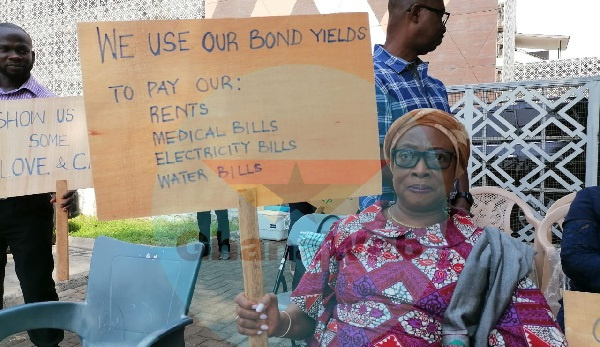 WE USE OUR BOND YIELDS
TO PAY OUR:
RENTS
MEDICAL BILLS
ELECTRICITY BILLS
WATER BILLS
SHOW US
SOME
LOVE &